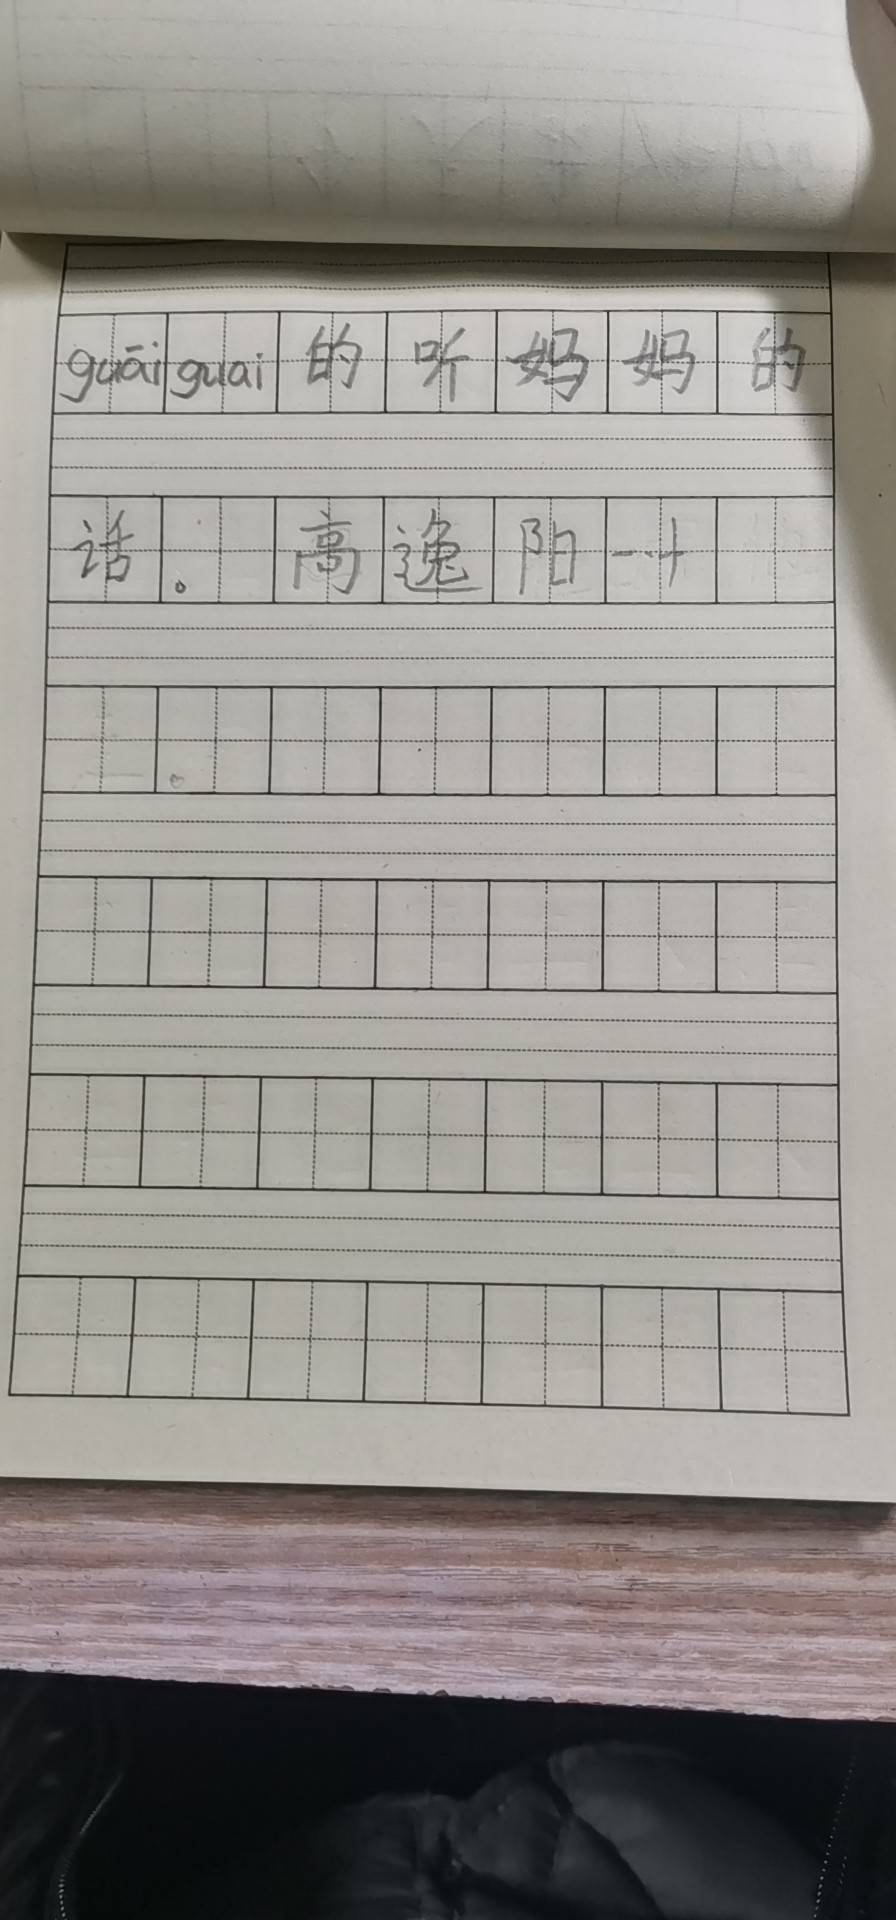 guāi guai 的听妈妈的
话。高逸阳